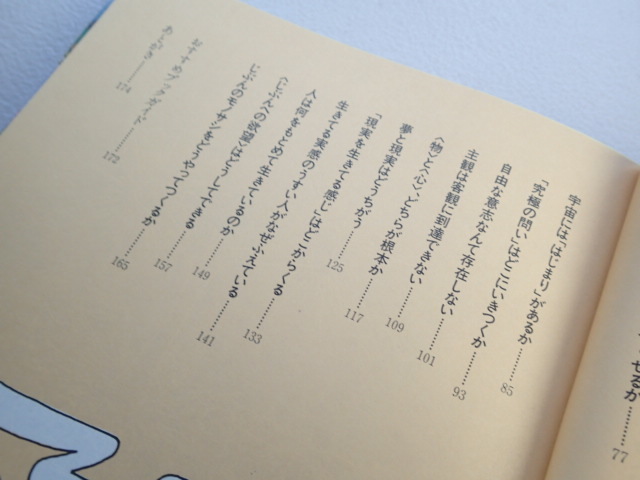 せるか……77
宇宙には「はじまり」があるか……85
「究極の問い」はどこにいきつくか……93
自由な意志なんて存在しない……101
主観は客観に到達できない……109
〈物〉と〈心〉、どちらが根本か……117
夢と現実はどうちがう……125
「現実を生きてる感じ」はどこからくる……133
生きてる実感のうすい人がなぜふえている……141
人は何をもとめて生きているのか……149
〈じぶんへの欲望〉はどうしてできる……157
じぶんのモノサシをどうやってつくるか……165
おすすめブックガイド……172
あとがき……174